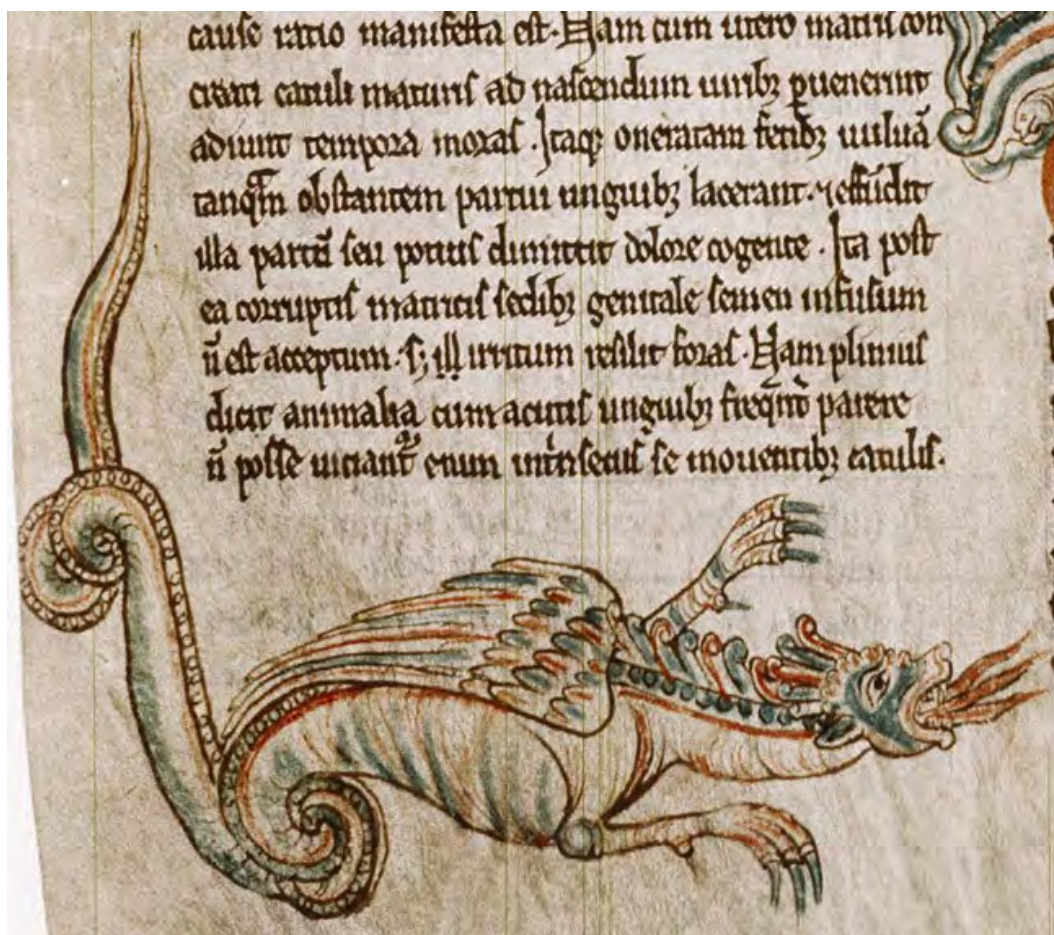 cause ratio manifesta est. Nam cum utero matris con
creati catuli maturis ad nascendum uiribꝫ ꝑuenerint
adiunt tempora moras. Itaqꝫ oneratam fetibꝫ uuluā
tanqͣm obstantem partui unguibꝫ lacerant. ⁊ effūdit
illa partū seu potius dimittit dolore cogente. Ita post
ea corruptis matricis sedibꝫ genitale semen infusum
n̄ est acceptum. sꝫ ill irritum resilit foras. Nam plinius
dicit animalia cum acutis unguibꝫ freqn̄t parere
n̄ posse uiciant᷑ enim int̉nsecus se mouentibꝫ catulis.